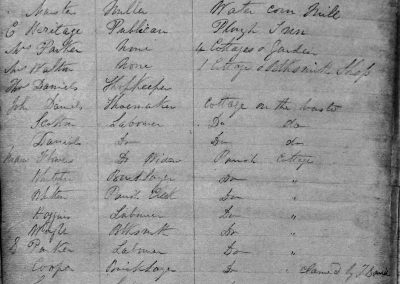 Master Miller Water corn Mill
E Heritage Publican Plough Inn
Mrs Parker None 4 Cottages & Garden
Jno Walton None 1 Cottage & Blksmiths Shop
Thos Daniels Shopkeeper
John Daniels Shoemaker Cottage on the waste
Labourer Do do
Daniels Do Do do
Do Widow Parish Cottage
Bricklayer Do "
Walton Parish Clerk Do "
Labourer Do "
Wright Blksmith Do "
E Parker Labourer Do "
Cooper Bricklayer Do " claimed by